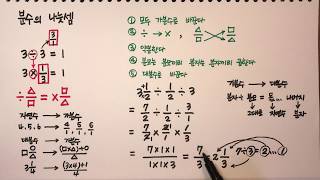 분수의 나눗셈
3÷3=1
3/1
3×1/3=1
÷△/□=×□/△
자연수 가분수
4, 5, 6 4/1, 5/1, 6/1
대분수 가분수
3 1/4 (3×4)+1/4
① 모두 가분수로 바꾼다
② ÷→×,
③ 약분한다
④ 분모는 분모끼리 분자는 분자끼리 곱한다
⑤ 대분수로 바꾼다
3 1/2 ÷ 1/2 ÷ 3
= 7/2 ÷ 1/2 ÷ 3/1
= 7/2 × 2/1 × 1/3
= 7×1×1/1×1×3 = 7/3 = 2 1/3
가분수 → 대분수
분자÷분모=몫…나머지
7÷3=2…1